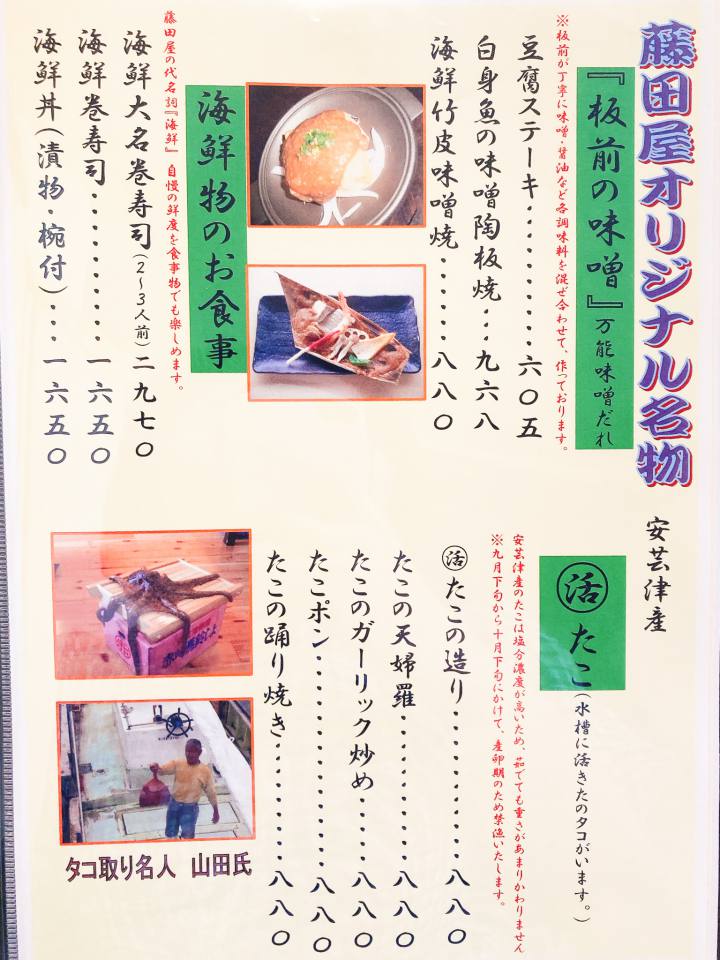 藤田屋オリジナル名物
『板前の味噌』万能味噌だれ
※板前が丁寧に味噌・醤油など各調味料を混ぜ合わせて、作っております。
豆腐ステーキ・・・・・・・・・・六〇五
白身魚の味噌陶板焼・・・九六八
海鮮竹皮味噌焼・・・・・八八〇
海鮮物のお食事
藤田屋の代名詞『海鮮』 自慢の鮮度を食事物でも楽しめます。
海鮮大名巻寿司(2〜3人前)二九七〇
海鮮巻寿司・・・・・・・・・一六五〇
海鮮丼(漬物・椀付)・・・一六五〇
安芸津産
活たこ(水槽に活きたのタコがいます。)
安芸津産のたこは塩分濃度が高いため、茹でても重さがあまりかわりません
※九月下旬から十月下旬にかけて、産卵期のため禁漁いたします。
活たこの造り・・・・・・・・・・八八〇
たこの天婦羅・・・・・・・・・・八八〇
たこのガーリック炒め・・・・・八八〇
たこポン・・・・・・・・・・・・・・八八〇
たこの踊り焼き・・・・・・・・・八八〇
タコ取り名人 山田氏